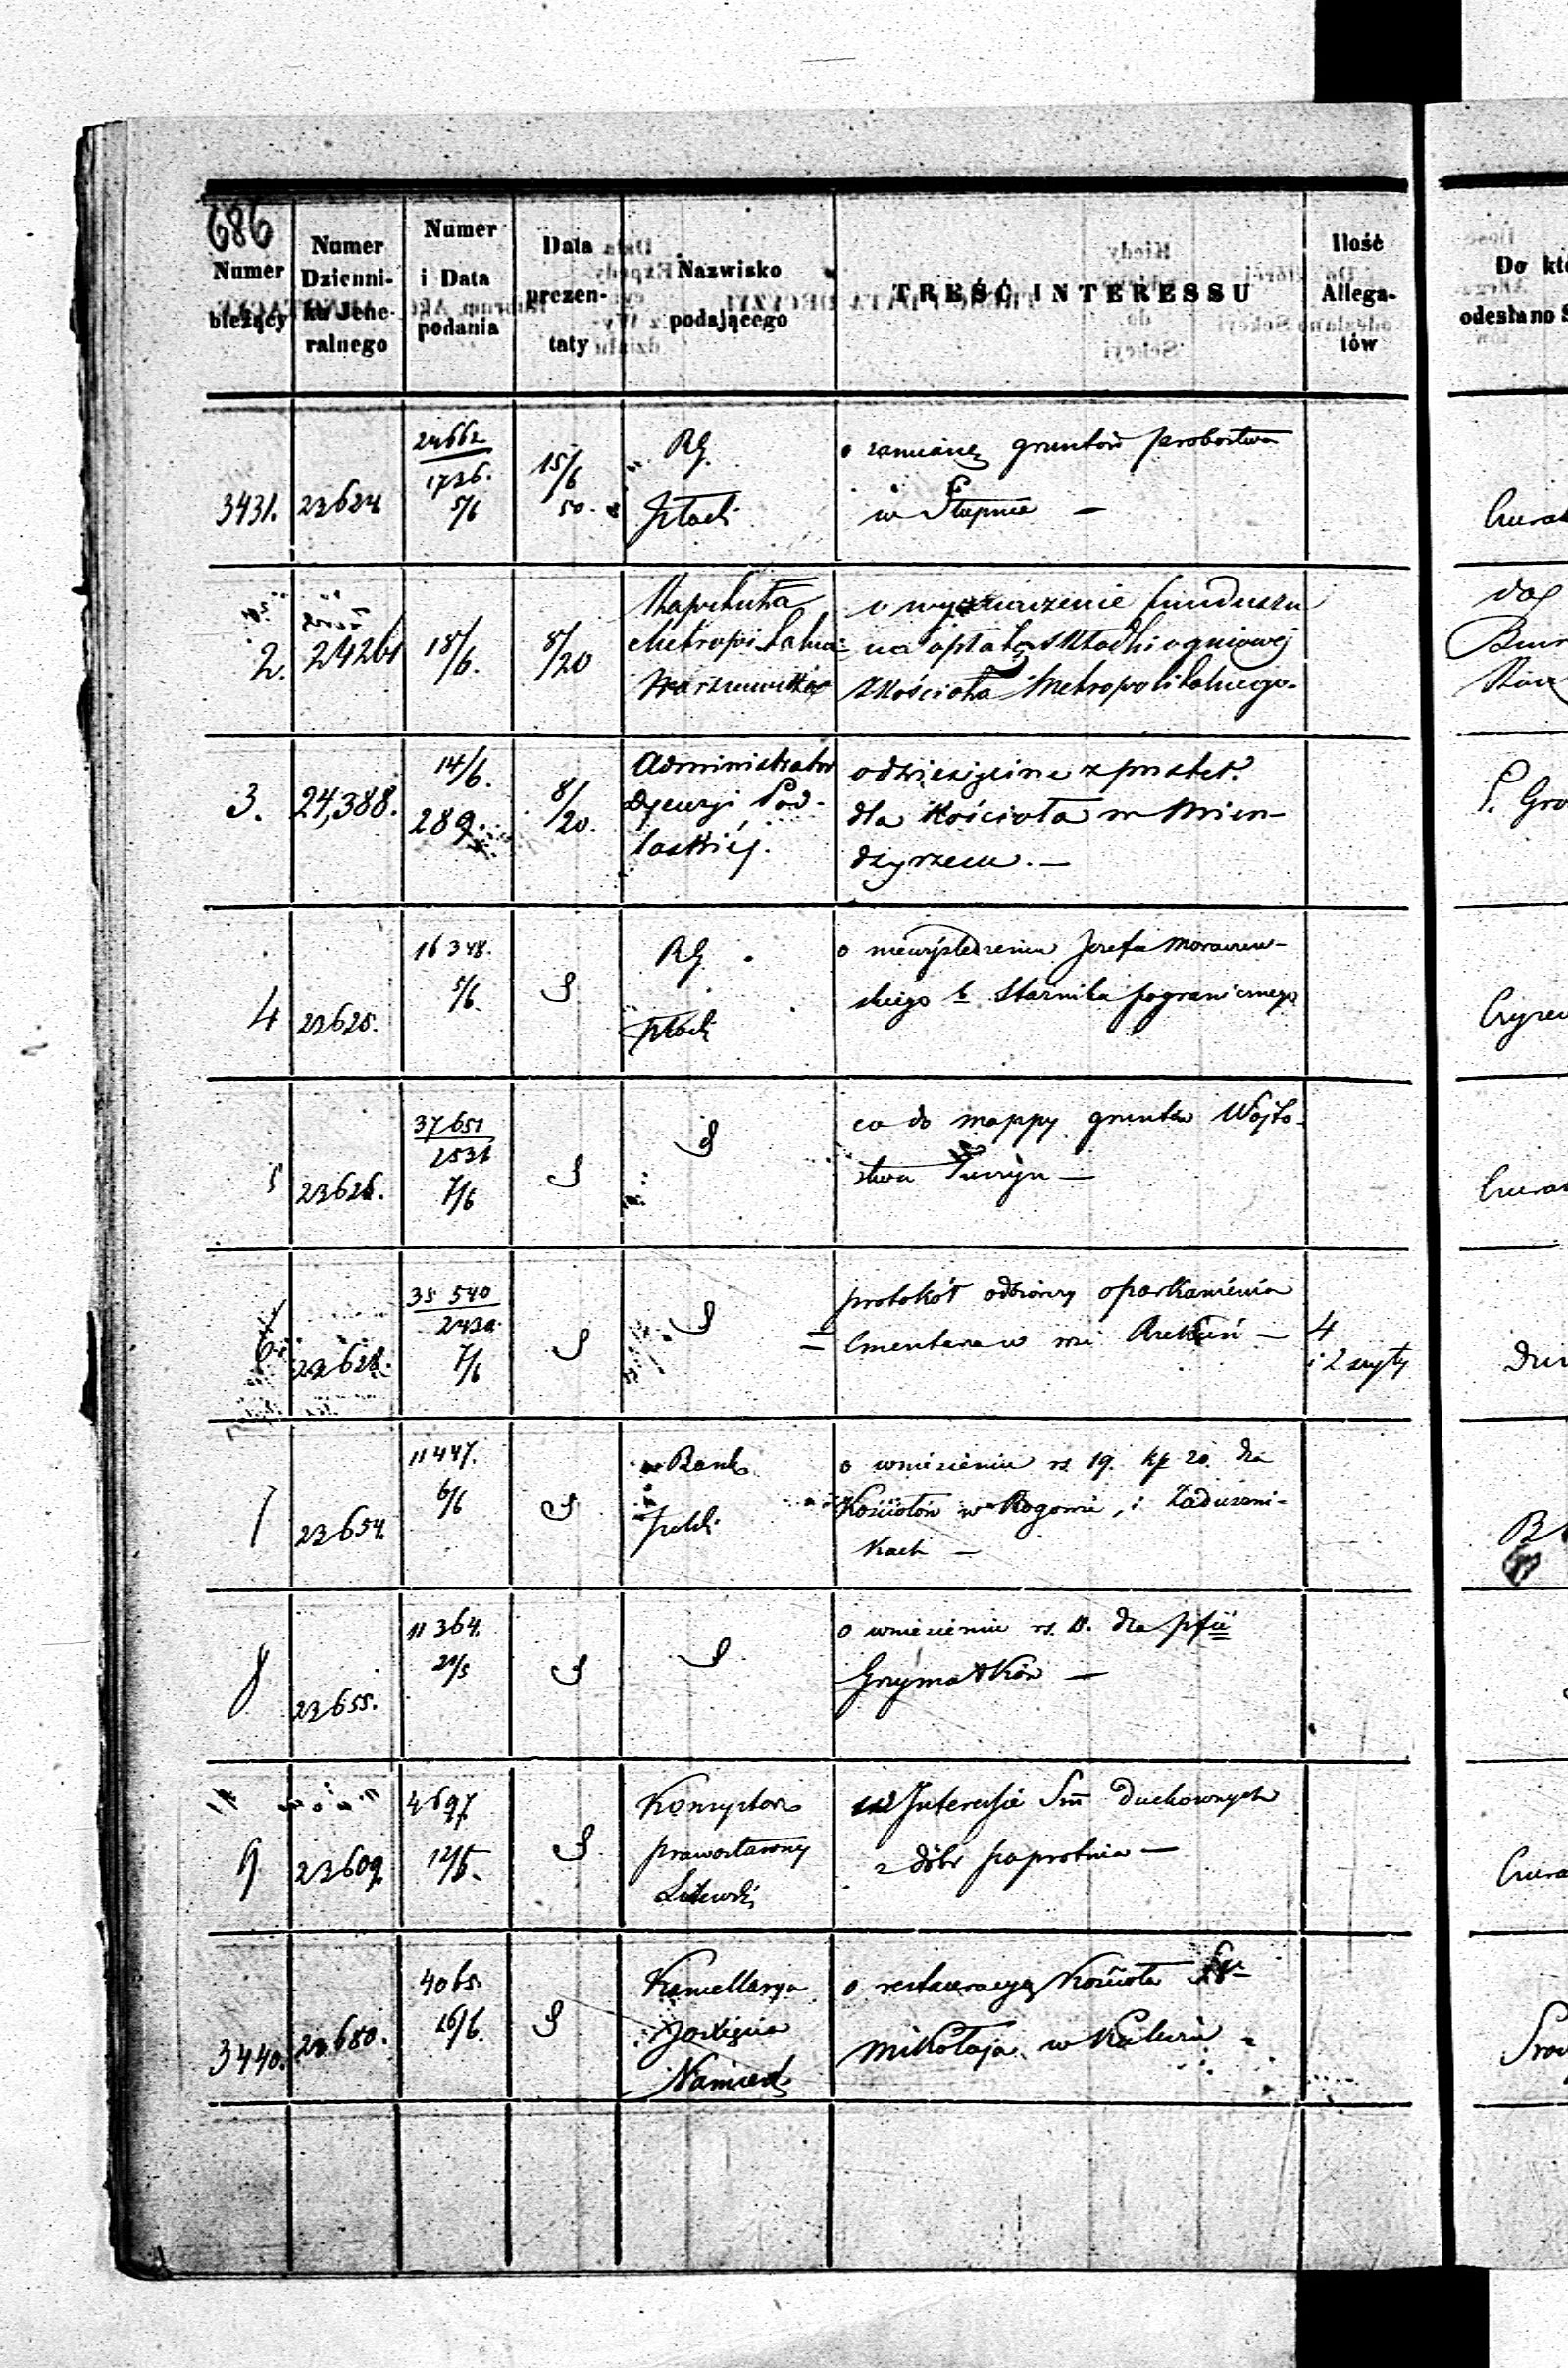 686
Numer
bieżący
Numer
Dzienni-
ka Jene-
ralnego
Numer
i Data
podania
Data
prezen-
taty
Nazwisko
podającego
TREŚĆ INTERESSU
Ilość
Allega-
tów
Do któ
odesłano S
3431. 23624 24662
1726.
5/6 15/6
50. RG.
Płocki o zamianę gruntów probostwa
w Słupnie —
2. 24261 18/6. 8/20 Kapituła
Metropolitalna
Warszawska o wyznaczenie funduszu
na opłatę składki ogniowej
z Kościoła Metropolitalnego.
3. 24,388. 14/6.
289. 8/20. Administrator
Dyecezji Pod-
laskiéj. o dziesięcinę z pustek
dla Kościoła w Mien-
dzyrzecu. —
4 23625. 16348.
5/6. RG.
Płocki o niewyśledzeniu Józefa Morawew-
skiego b. Strażnika pogranicznego
5 23626. 37651
2531
7/6 co do mappy gruntów Wójto-
stwa —
6 23628. 35 540
2430
7/6 protokół odbiorczy oparkanienia
Cmentarza w wsi Rzekuń — 4
i 2 zszyty
7 23654 11447.
6/6 Bank
Polski o wniesieniu rs. 19. kp. 20. dla
Kościołów w Rogowie, i Zaduszni-
kach —
8 23655. 11364.
21/5 o wniesieniu rs. dla pfii
Grzymałków —
9 23609. 4697
12/5. Konsystorz
prawosławny
Litewski w Interesie Summ Duchownych
z dóbr Paprotnia —
3440. 23680. 4065.
16/6. Kancellarya
Namiest. o restauracyę Kościoła Sgo
Mikołaja w Kaliszu